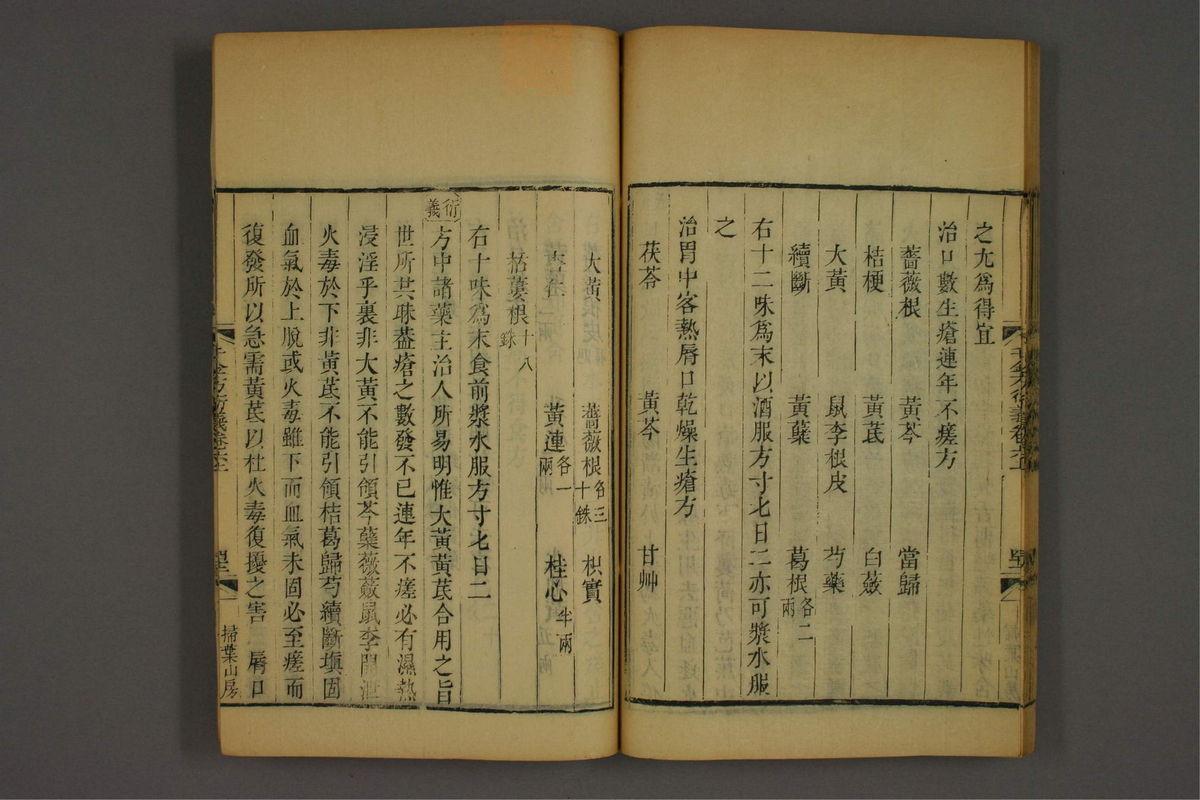 之尤爲得宜
治口數生瘡連年不瘥方
薔薇根 黃芩 當歸
桔梗 黃茋 白蘞
大黃 鼠李根皮 芍藥
續斷 黃蘗 葛根各二兩
右十二味爲末以酒服方寸匕日二亦可漿水服
之
治胃中客熱脣口乾燥生瘡方
茯苓 黃芩 甘艸
大黃 薔薇根各三十銖 枳實
杏仁 黃連各一兩 桂心半兩
栝蔞根十八銖
右十味爲末食前漿水服方寸匕日二
衍義
方中諸藥主治人所易明惟大黃黃茋合用之旨
世所共昧葢瘡之數發不已連年不瘥必有濕熱
浸淫乎裏非大黃不能引領芩蘗薇蘞鼠李開泄
火毒於下非黃茋不能引領桔葛歸芍續斷塡固
血氣於上脫或火毒雖下而血氣未固必至瘥而
復發所以急需黃茋以杜火毒復擾之害 脣口
千金方衍義卷六上
掃葉山房